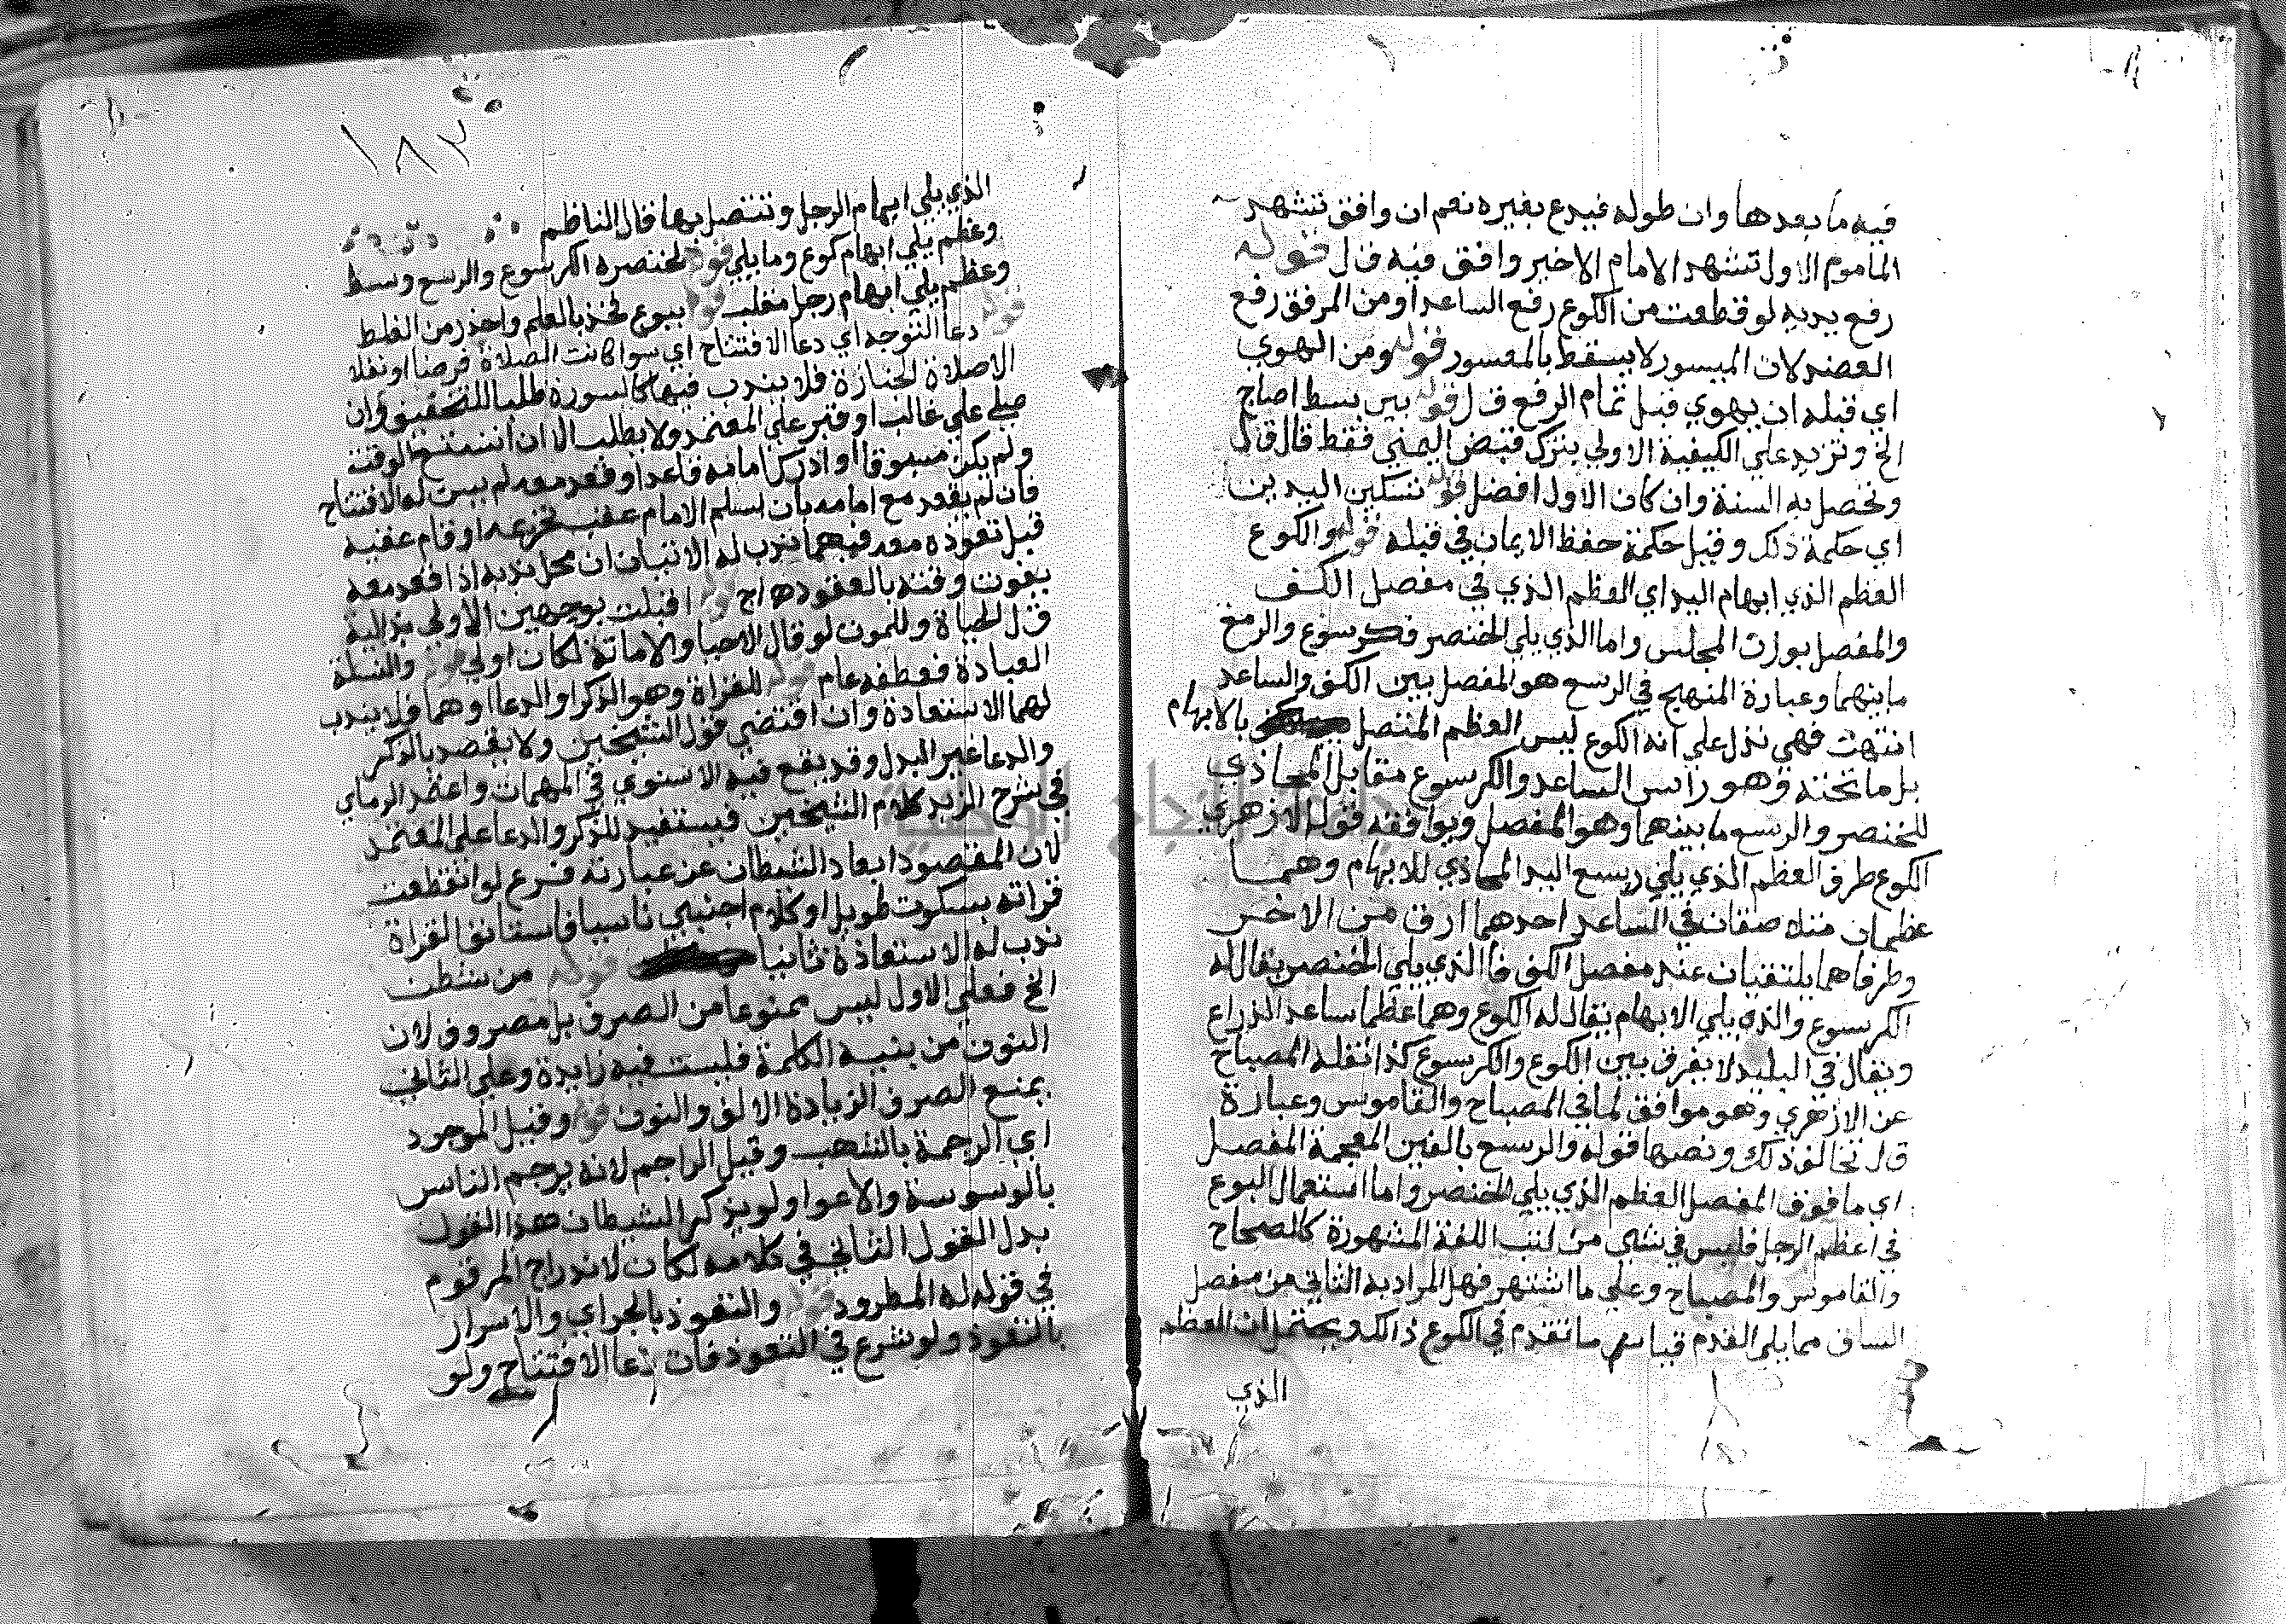 فيه ما بعدها وان طوله فيدع بغيره نعم ان وافق تشهد
الماموم الاول تشهد الامام الاخير وافق فيه ق ل قوله
رفع يديه لو قطعت من الكوع رفع الساعد او من المرفق رفع
العضد لان الميسور لا يسقط بالمعسور قوله ومن الهوي
اي قبله ان يهوي قبل تمام الرفع ق ل قوله بين بسط اصابع
الخ وتزيد علي الكيفية الاولي بترك قبض اليمني فقط قال ق ل
وتحصل به السنة وان كان الاول افضل قوله تسكين اليدين
اي حكمة ذلك وقيل حكمة حفظ الايمان في قبله قوله والكوع
العظم الذي ابهام اليد اي العظم الذي في مفصل الكف
والمفصل بوزن المجلس واما الذي يلي الخنصر فكرسوع والرسغ
ما بينهما وعبارة المنهج في الرسغ هو المفصل بين الكف والساعد
انتهت فهي تدل علي انه الكوع ليس العظم المتصل بالابهام
بل ما تحته وهو راس الساعد والكرسوع مقابل المحاذي
للخنصر والرسغ ما بينهما وهو المفصل ويوافقه قول الازهري
الكوع طرف العظم الذي يلي رسغ اليد المحاذي للابهام وهما
عظمان متلاصقان في الساعد احدهما ارق من الاخر
وطرفاهما يلتقيان عند مفصل الكف فالذي يلي الخنصر يقال له
الكرسوع والذي يلي الابهام يقال له الكوع وهما عظما ساعد الذراع
ويقال في البليد لا يفرق بين الكوع والكرسوع كذا نقله المصباح
عن الازهري وهو موافق لما في المصباح والقاموس وعبارة
ق ل تخالف ذلك ونصها قوله والرسغ بالغين المعجمة المفصل
اي ما فوق المفصل العظم الذي يلي الخنصر واما استعمال البوع
في اعظم الرجل فليس في شي من كتب اللغة المشهورة كالصحاح
والقاموس والمصباح وعلي ما اشتهر فهل المراد به الثاني من مفصل
الساق مما يلي القدم قياس ما تقدم في الكوع ذالك ويحتمل ان العظم
الذي
١٨٢
الذي يلي ابهام الرجل وتتصل بها قال الناظم
وعظم يلي ابهام كوع وما يلي لخنصره الكرسوع والرسغ وسط
وعظم يلي ابهام رجل ملقب ببوع فخذ بالعلم واحذر من الغلط
قوله دعا التوجه اي دعا الافتتاح اي سوا كانت الصلاة فرضا او نفلا
الاصلاة الجنازة فلا يندب فيها كالسورة طلبا للتخفيف وان
صلي علي غائب او قبر علي المعتمد ولا يطلب الا ان اتسع الوقت
ولم يكن مسبوقا او ادرك امامه قاعدا وقعد معه لم يسن له الافتتاح
فان لم يقعد مع امامه بان سلم الامام عقب تحرمه او قام عقبه
قبل تعوذه معه فيهما ندب له الاتيان ان محل ندبه اذا قعد معه
يفوت وقته بالعقود ه اج قوله اقبلت بوجهي الاولي بذاتي
ق ل للحياة وللموت لو قال الاحيا والاماتة لكان اولي قوله والنسك
العبادة فعطفه عام قوله للقراة وهو الذكر والدعا او هما فلا يندب
لهما الاستعاذة وان اقتضي قول الشيخين ولا يقصد بالذكر
والدعا غير البدل وقد يقع فيه الاسنوي في المهمات واعتمد الرملي
في شرح الزبد كلام الشيخين فيستفيد للذكر والدعا علي المعتمد
لان المقصود ابعاد الشيطان عن عبارته فرع لو انقطعت
قراته بسكوت طويل او كلام اجنبي ناسيا فاستانف القراة
ندب له الاستعاذة ثانيا قوله من شطن
الخ فعلي الاول ليس ممنوعا من الصرف بل مصروف لان
النون من بنية الكلمة فليست فيه زايدة وعلي الثاني
يمنع الصرف لزيادة الالف والنون قوله وقيل الموجرد
اي الرجمة بالشهب وقيل الراجم لانه يرجم الناس
بالوسوسة والاعوا ولو يذكر الشيطان هذا القول
بدل القول الثاني في كلامه لكان لاندراج المرقوم
في قوله له المطرود قوله والتعوذ بالجراي والاسرار
بالتعوذ ولو شرع في التعوذ فات دعا الافتتاح ولو